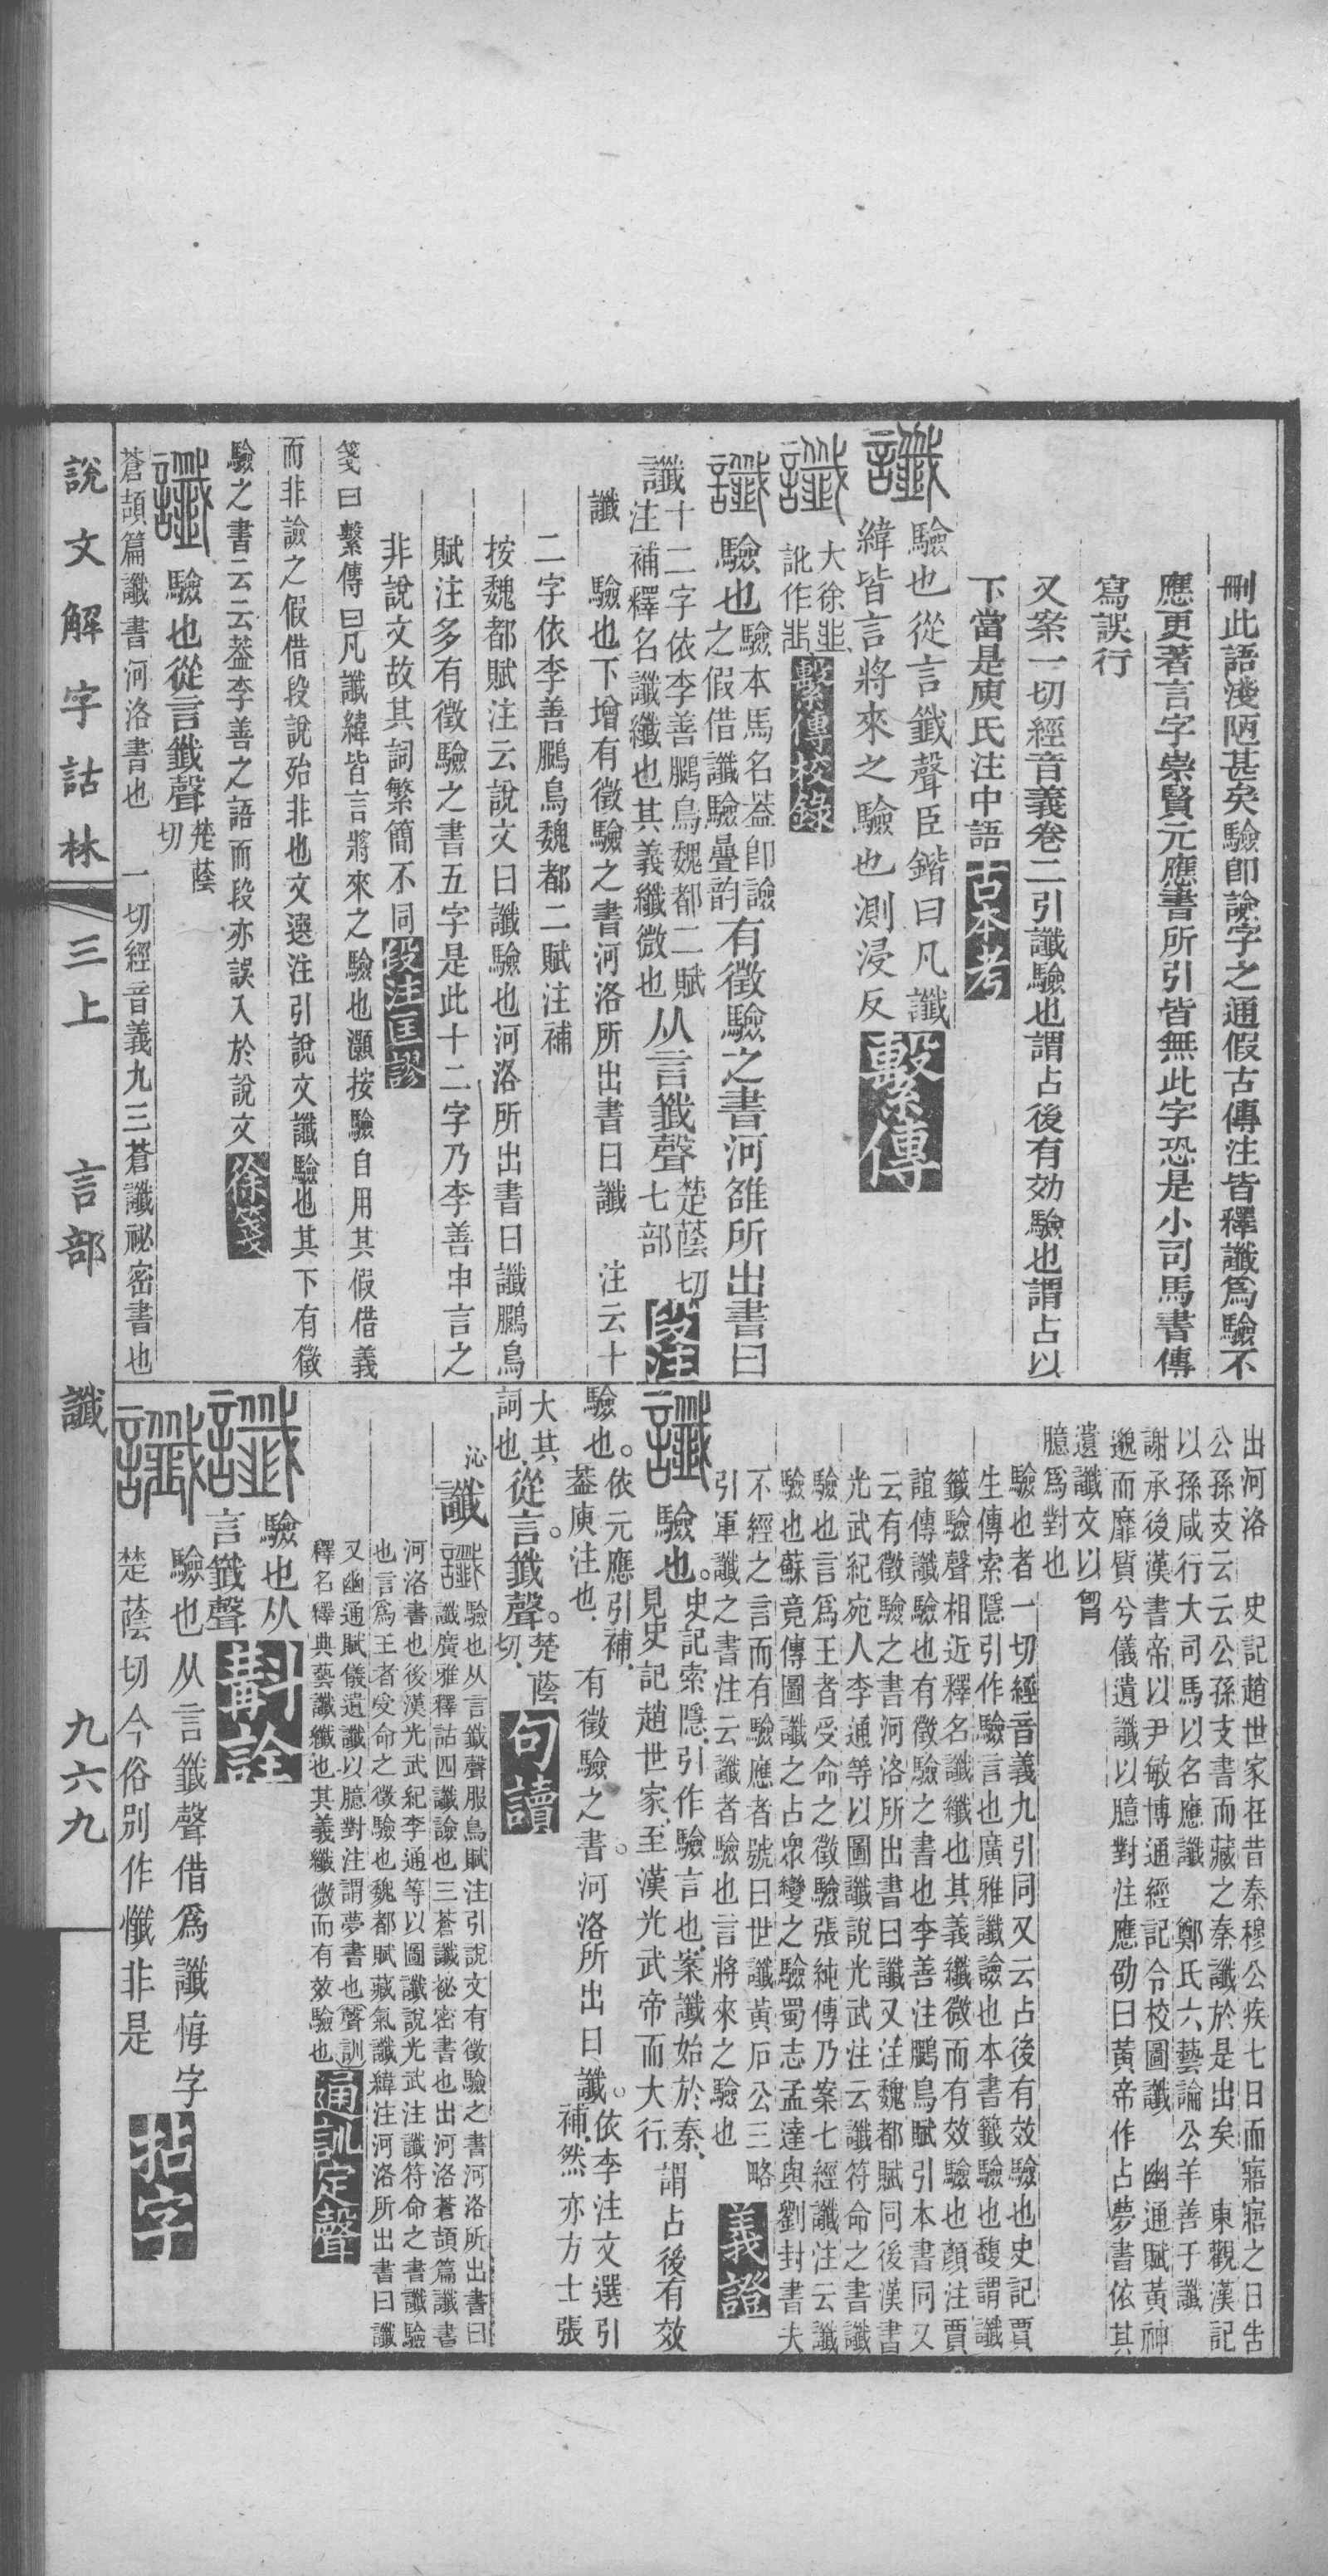 刪此語淺陋甚矣驗卽譣字之通假古傳注皆釋讖爲驗不
應更著言字崇賢元應書所引皆無此字恐是小司馬書傳
寫誤行
又案一切經音義卷二引讖驗也謂占後有効驗也謂占以
下當是庾氏注中語 古本考
讖 驗也從言韱聲臣鍇曰凡讖
緯皆言將來之驗也測浸反 繫傳
讖 大徐韭
訛作 繫傳校錄
讖 驗也 驗本馬名葢卽譣
之假借讖驗疊韵 有徵驗之書河雒所出書曰
讖 十二字依李善鵬鳥魏都二賦
注補釋名讖纖也其義纖微也 从言韱聲 楚蔭切
七部 段注
讖 驗也下增有徵驗之書河洛所出書曰讖 注云十
二字依李善鵬鳥魏都二賦注補
按魏都賦注云說文曰讖驗也河洛所出書曰讖鵬鳥
賦注多有徵驗之書五字是此十二字乃李善申言之
非說文故其詞繁簡不同 段注匡謬
箋曰繫傳曰凡讖緯皆言將來之驗也灝按驗自用其假借義
而非譣之假借段說殆非也文選注引說文讖驗也其下有徵
驗之書云云葢李善之語而段亦誤入於說文 徐箋
讖 驗也從言韱聲 楚蔭
切
蒼頡篇讖書河洛書也 一切經音義九三蒼讖祕密書也
出河洛 史記趙世家在昔秦穆公疾七日而寤寤之日告
公孫支云云公孫支書而藏之秦讖於是出矣 東觀漢記
以孫咸行大司馬以名應讖 鄭氏六藝論公羊善于讖
謝承後漢書帝以尹敏博通經記令校圖讖 幽通賦黃神
邈而靡質兮儀遺讖以臆對注應劭曰黃帝作占夢書依其
遺讖文以
臆爲對也
驗也者一切經音義九引同又云占後有效驗也史記賈
生傳索隱引作驗言也廣雅讖譣也本書籤驗也馥謂讖
籤驗聲相近釋名讖纖也其義纖微而有效驗也顏注賈
誼傳讖驗也有徵驗之書也李善注鵬鳥賦引本書同又
云有徵驗之書河洛所出書曰讖又注魏都賦同後漢書
光武紀宛人李通等以圖讖說光武注云讖符命之書讖
驗也言爲王者受命之徵驗張純傳乃案七經讖注云讖
驗也蘇竟傳圖讖之占眾變之驗蜀志孟達與劉封書夫
不經之言而有驗應者號曰世讖黃石公三略
引軍讖之書注云讖者驗也言將來之驗也 義證
讖 驗也。 史記索隱、引作驗言也、案讖始於秦、
見史記趙世家、至漢光武帝而大行、 謂占後有效
驗也。 依元應引補、
葢庾注也、 有徵驗之書。河洛所出曰讖。 依李注文選引
補、然亦方士張
大其
詞也、 從言。韱聲。 楚蔭
切、 句讀
沁 讖 讖 驗也从言韱聲服鳥賦注引說文有徵驗之書河洛所出書曰
讖廣雅釋詁四讖譣也三蒼讖祕密書也出河洛蒼頡篇讖書
河洛書也後漢光武紀李通等以圖讖說光武注讖符命之書讖驗
也言爲王者受命之徵驗也魏都賦藏氣讖緯注河洛所出書曰讖
又幽通賦儀遺讖以臆對注謂夢書也聲訓
釋名釋典藝讖纖也其義纖微而有效驗也 通訓定聲
讖 驗也从
言韱聲 斠詮
讖 驗也从言韱聲借爲讖悔字
楚蔭切今俗別作懺非是 拈字
說文解字詁林 三上 言部 讖 九六九